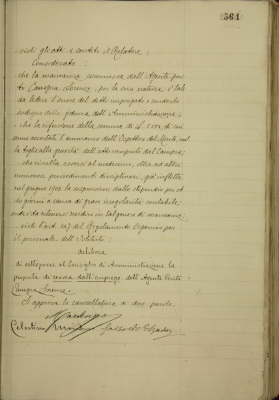 561
visti gli atti e sentito il Relatore;
Considerato:
che la mancanza commessa dall'Agente
Canepa Lorenzo, per la sua natura è tale
da ledere l'onore del detto impiegato e renderlo
indegno della fiducia dell'Amministrazione;
che la rifusione della somma di L.
nulla
toglie alla gravità dell'atto compiuto dal Canepa;
che risulta a carico al medesimo, oltre ad altri
numerosi provvedimenti disciplinari, già inflitta
nel giugno 1909 la sospensione dallo stipendio per
giorni a causa di gravi irregolarità contabili,
onde è da ritenersi recidivo in tal genere di mancanze;
visto l'art. 147 del Regolamento Organico per
il personale dell'Istituto;
delibera
di sottoporre al Consiglio di Amministrazione la
proposta di revoca dall'impiego dell'Agente
Canepa Lorenzo.
Si approva la cancellatura di due parole.